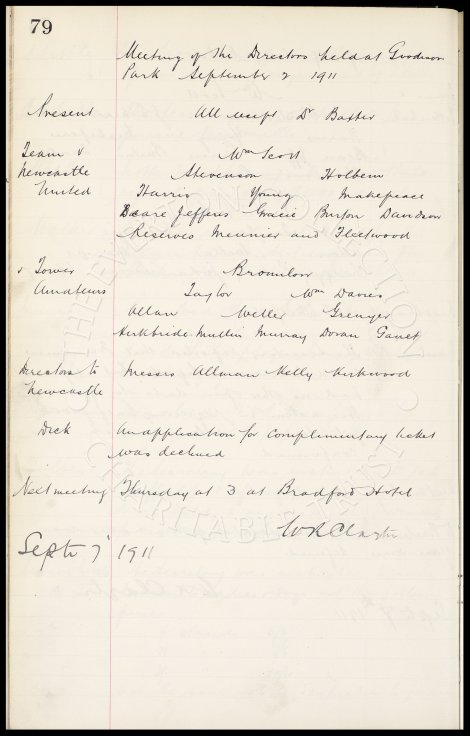 79
Meeting of the Directors held at Goodison
Park September 2 1911
Present All except Dr Baxter
Team v Wm Scott
Newcastle Stevenson Holbem
United Harris Young Makepeace
Beare Jefferis Gracie Burton Davidson
Reserves Meunier and Fleetwood
v Tower Bromilow
Amateurs Taylor Wm Davies
Allan Weller Grenyer
Kirkbride Mullin Murray Doran Gault
Directors to Messrs Allman Kelly Kirkwood
Newcastle
Dick An application for complimentary ticket
was declined
Next meeting Thursday at 3 at Bradford Hotel
W R Clayton
Sept 7 1911
THE EVERTON COLLECTION
CHARITABLE TRUST